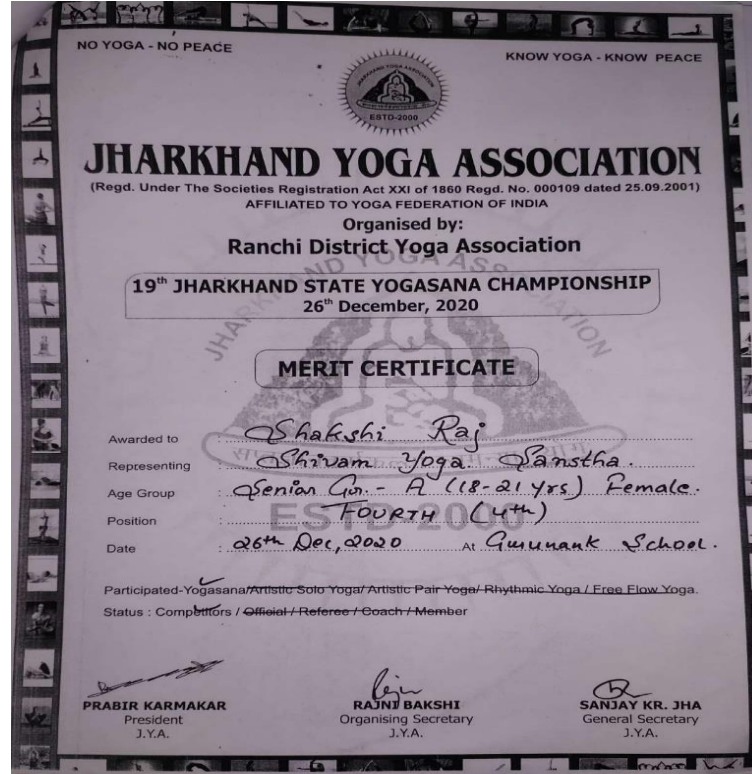 NO YOGA - NO PEACE
KNOW YOGA - KNOW PEACE
JHARKHAND YOGA ASSOCIATION
ESTD-2000
JHARKHAND YOGA ASSOCIATION
(Regd. Under The Societies Registration Act XXI of 1860 Regd. No. 000109 dated 25.09.2001)
AFFILIATED TO YOGA FEDERATION OF INDIA
Organised by:
Ranchi District Yoga Association
19th JHARKHAND STATE YOGASANA CHAMPIONSHIP
26th December, 2020
JHARKHAND YOGA ASSOCIATION
MERIT CERTIFICATE
Awarded to : Shakshi Raj
Representing : Shivam Yoga Sanstha.
Age Group : Senior Gr. - A (18-21 yrs) Female.
Position : FOURTH (4th)
ESTD-2000
Date : 26th Dec, 2020 At Gurunank School.
Participated-Yogasana/Artistic Solo Yoga/ Artistic Pair Yoga/ Rhythmic Yoga / Free Flow Yoga.
Status : Competitors / Official / Referee / Coach / Member
PRABIR KARMAKAR
President
J.Y.A.
RAJNI BAKSHI
Organising Secretary
J.Y.A.
SANJAY KR. JHA
General Secretary
J.Y.A.